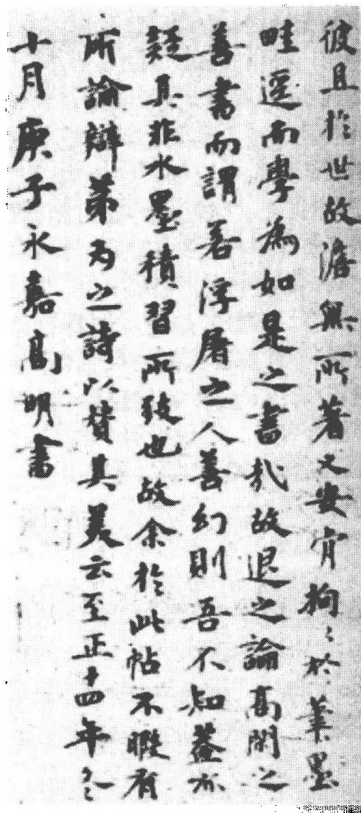 彼且於世故澹無所著又安肯拘〻於筆墨
畦逕而學為如是之書哉故退之論高閑之
善書而謂善浮屠之人善幻則吾不知蓋亦
疑其非水墨積習所致也故余於此帖不暇有
所論辯第為之詩以贊其美云至正十四年
十月庚子永嘉高明書